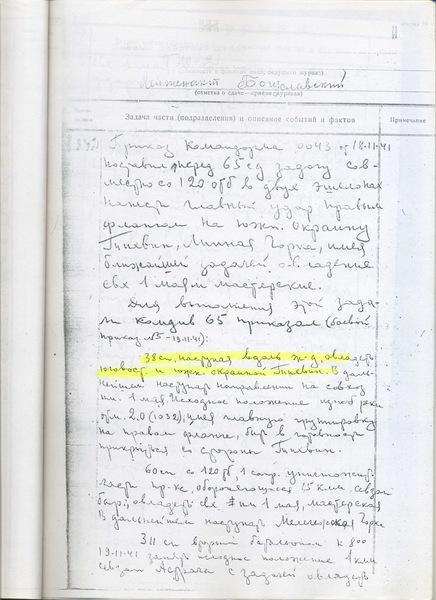 Лейтенант Богуславский
(отметка о сдаче—приеме журнала)
Задача части (подразделения) и описание событий и фактов
Примечание
Приказ Командарма 0043 от 18-11-41
поставил перед 65 сд задачу сов-
местно со 120 отб в двух эшелонах
нанести главный удар правым
флангом на южн. окраину
Тихвин, Липная Горка, имея
ближайшей задачей овладение
свх 1 мая и мастерские.
Для выполнения этой зада-
чи комдив 65 приказал (боевой
приказ №5 - 19-11-41):
38 сп, наступая вдоль ж-д, овладеть
юговост. и южн. окраиной Тихвин. В даль-
нейшем наступать направлении на совхоз
им. 1 мая. Исходное положение
отм. 2.0 (1032), имея главную группировку
на правом фланге, быть в готовности
прикрыться со стороны Тихвин.
60 сп со 120 тб, 1 сапр. уничтожить
часть пр-ка, обороняющуюся 1,5 км.
овладеть свх. им 1 мая, мастерская
В дальнейшем наступать Горка
311 сп второй батальон к 8 00
19-11-41 занять исходное положение 1 км
Астрача с задачей овладеть